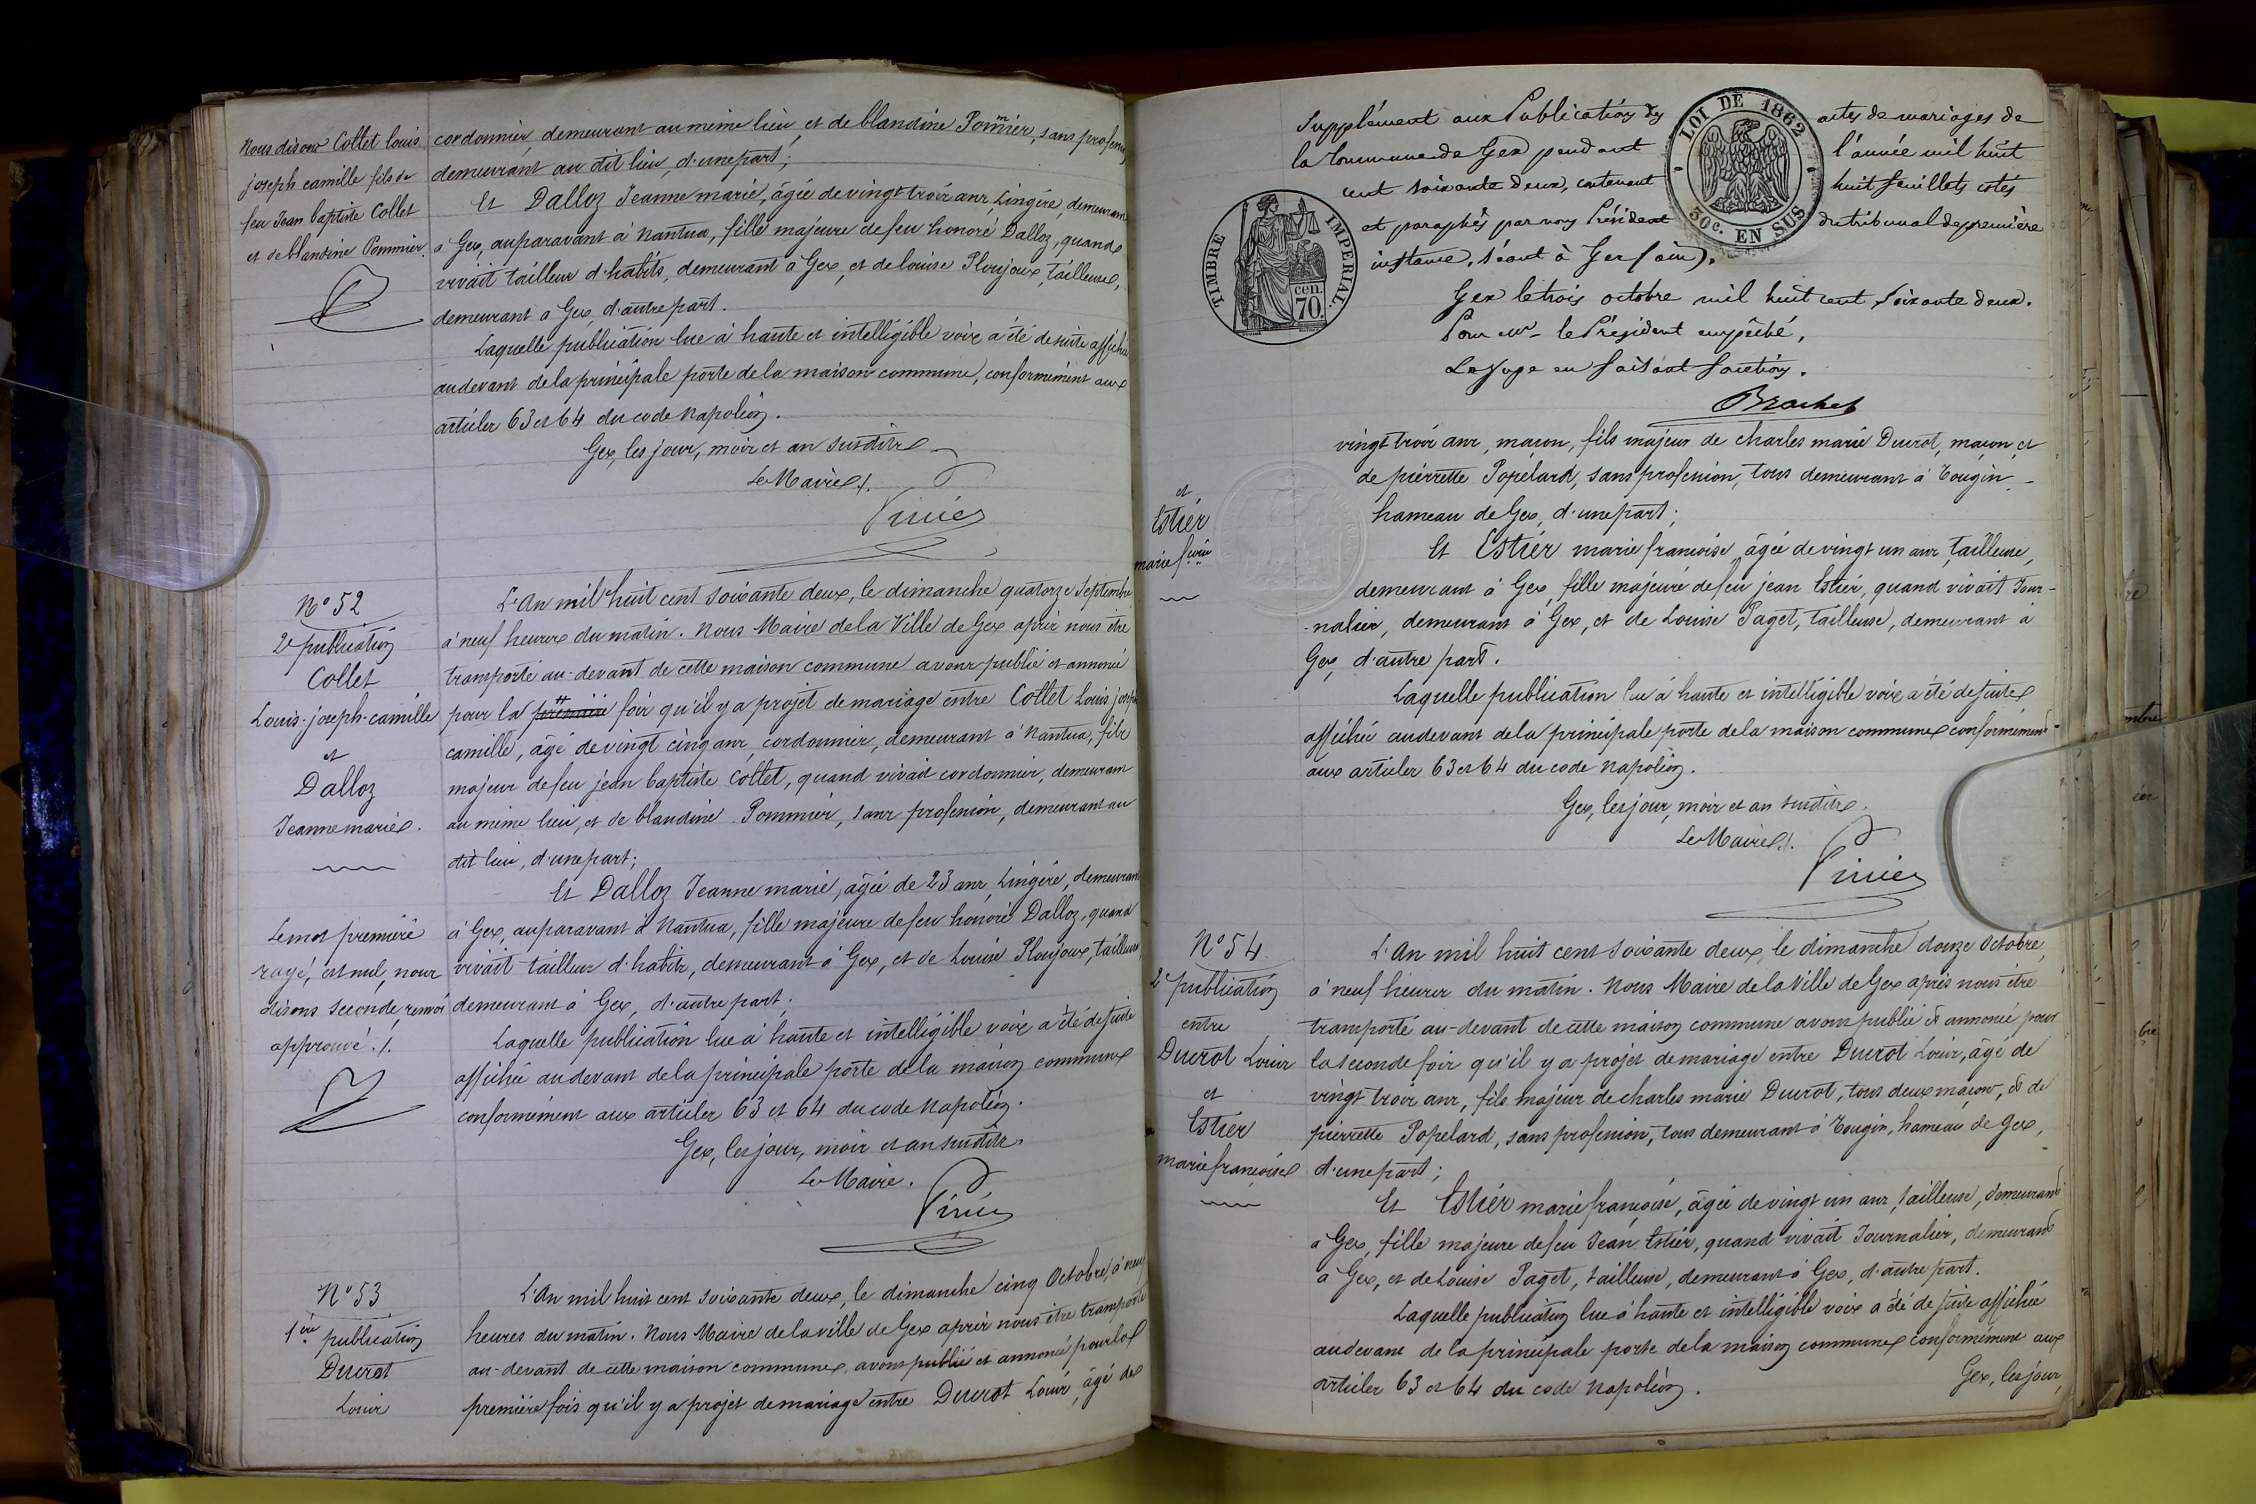 Nous disons Collet Louis
joseph camille fils de
feu Jean baptiste Collet
et de blandine Pommier.
cordonnier, demeurant au même lieu, et de blandine Pommier, sans profession
demeurant au dit lieu, d'une part;
Et Dalloz Jeanne marie, âgée de vingt trois ans, Lingère, demeurant
à Gex, auparavant à Nantua, fille majeure de feu honoré Dalloz, quand
vivait tailleur d'habits, demeurant à Gex, et de louise Ploujoux, tailleuse,
demeurant à Gex, d'autre part.
Laquelle publication lue à haute et intelligible voix a été de suite affichée
au devant de la principale porte de la maison commune, conformément aux
articles 63 et 64 du code Napoléon.
Gex, les jour, mois et an susdits
Le Maire /.
N° 52
2e publication
Collet
Louis-joseph-camille
et
Dalloz
Jeanne marie.
Le mot première
rayé, est nul, nous
disons seconde, renvoi
approuvé./.
L'An mil huit cent soixante deux, le dimanche quatorze Septembre
à neuf heures du matin. Nous Maire de la Ville de Gex après nous être
transporté au-devant de cette maison commune avons publié et annoncé
pour la première fois qu'il y a projet de mariage entre Collet Louis joseph
camille, âgé de vingt cinq ans, cordonnier, demeurant à Nantua, fils
majeur de feu jean baptiste Collet, quand vivait cordonnier, demeurant
au même lieu, et de blandine Pommier, sans profession, demeurant au
dit lieu, d'une part;
Et Dalloz Jeanne marie, âgée de 23 ans, Lingère, demeurant
à Gex, auparavant à Nantua, fille majeure de feu honoré Dalloz, quand
vivait tailleur d'habits, demeurant à Gex, et de Louise Ploujoux, tailleuse,
demeurant à Gex, d'autre part.
Laquelle publication lue à haute et intelligible voix a été de suite
affichée au devant de la principale porte de la maison commune
conformément aux articles 63 et 64 du code Napoléon.
Gex, les jour, mois et an susdits.
Le Maire.
N° 53
1ère publication
Ducrot
Louis
L'An mil huit cent soixante deux, le dimanche cinq Octobre, à neuf
heures du matin. Nous Maire de la ville de Gex après nous être transporté
au-devant de cette maison commune, avons publié et annoncé pour la
première fois qu'il y a projet de mariage entre Ducrot Louis, âgé de
Supplément aux Publications des actes de mariages de
la Commune de Gex pendant l'année mil huit
cent soixante deux, contenant huit feuillets cotés
et paraphés par nous Président du tribunal de première
instance, séant à Gex (ain).
Gex le trois octobre mil huit cent soixante deux.
Pour Mr le Président empêché,
Le Juge en faisant fonction.
Brachet
LOI DE 1862
50c. EN SUS
TIMBRE IMPÉRIAL.
cen.
70.
et
Estier
marie f.çoise
vingt trois ans, maçon, fils majeur de charles marie Ducrot, maçon, et
de pierrette Popelard, sans profession, tous demeurant à Tougin -
hameau de Gex, d'une part;
Et Estier marie françoise, âgée de vingt un ans, tailleuse,
demeurant à Gex, fille majeure de feu jean Estier, quand vivait Jour-
-nalier, demeurant à Gex, et de Louise Paget, tailleuse, demeurant à
Gex, d'autre part.
Laquelle publication lue à haute et intelligible voix a été de suite
affichée au devant de la principale porte de la maison commune conformément
aux articles 63 et 64 du code Napoléon.
Gex, les jour, mois et an susdits.
Le Maire /.
N° 54
2e publication
entre
Ducrot Louis
et
Estier
marie françoise
L'An mil huit cent soixante deux, le dimanche douze Octobre,
à neuf heures du matin. Nous Maire de la ville de Gex après nous être
transporté au-devant de cette maison commune avons publié et annoncé pour
la seconde fois qu'il y a projet de mariage entre Ducrot Louis, âgé de
vingt trois ans, fils majeur de charles marie Ducrot, tous deux maçons, et de
pierrette Popelard, sans profession, tous demeurant à Tougin, hameau de Gex,
d'une part;
Et Estier marie françoise, âgée de vingt un ans, tailleuse, demeurant
à Gex, fille majeure de feu Jean Estier, quand vivait Journalier, demeurant
à Gex, et de Louise Paget, tailleuse, demeurant à Gex, d'autre part.
Laquelle publication lue à haute et intelligible voix a été de suite affichée
au devant de la principale porte de la maison commune conformément aux
articles 63 et 64 du code Napoléon.
Gex, les jour,